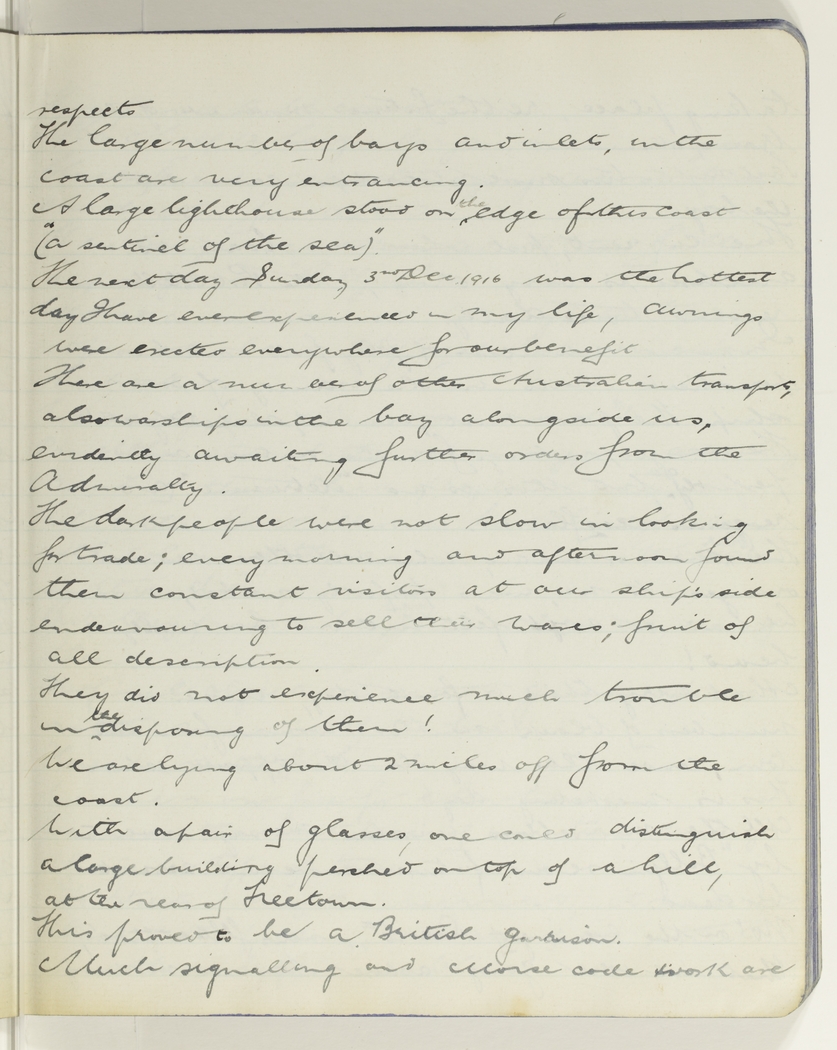 respects
The large number of bays and inlets, in the
coast are very entrancing.
A large lighthouse stood on the edge of this coast
"(a sentinel of the sea)".
The next day Sunday 3rd Dec 1916 was the hottest
day I have ever experienced in my life, awnings
were erected everywhere for our benefit
There are a number of other Australian transports,
also warships in the bay alongside us,
evidently awaiting further orders from the
Admiralty.
The dark people were not slow in looking
for trade; every morning and afternoon found
them constant visitors at our ship's side
endeavouring to sell their wares; fruit of
all description.
They did not experience much trouble
in the disposing of them!
We are lying about 2 miles off from the
coast.
With a pair of glasses, one could distinguish
a large building perched on top of a hill,
at the rear of Freetown.
This proved to be a British garrison.
Much signalling and morse code work are